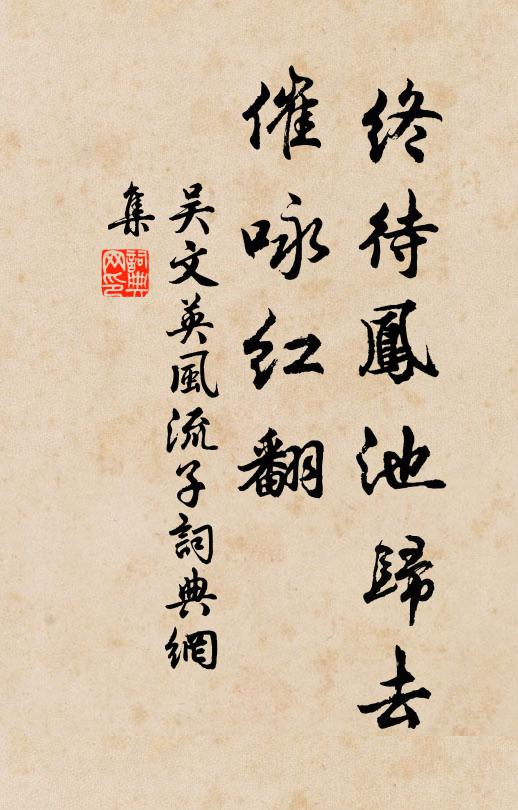 終待鳳池歸去
催咏紅翻
吳文英風流子詞典網
集
詞典
网印